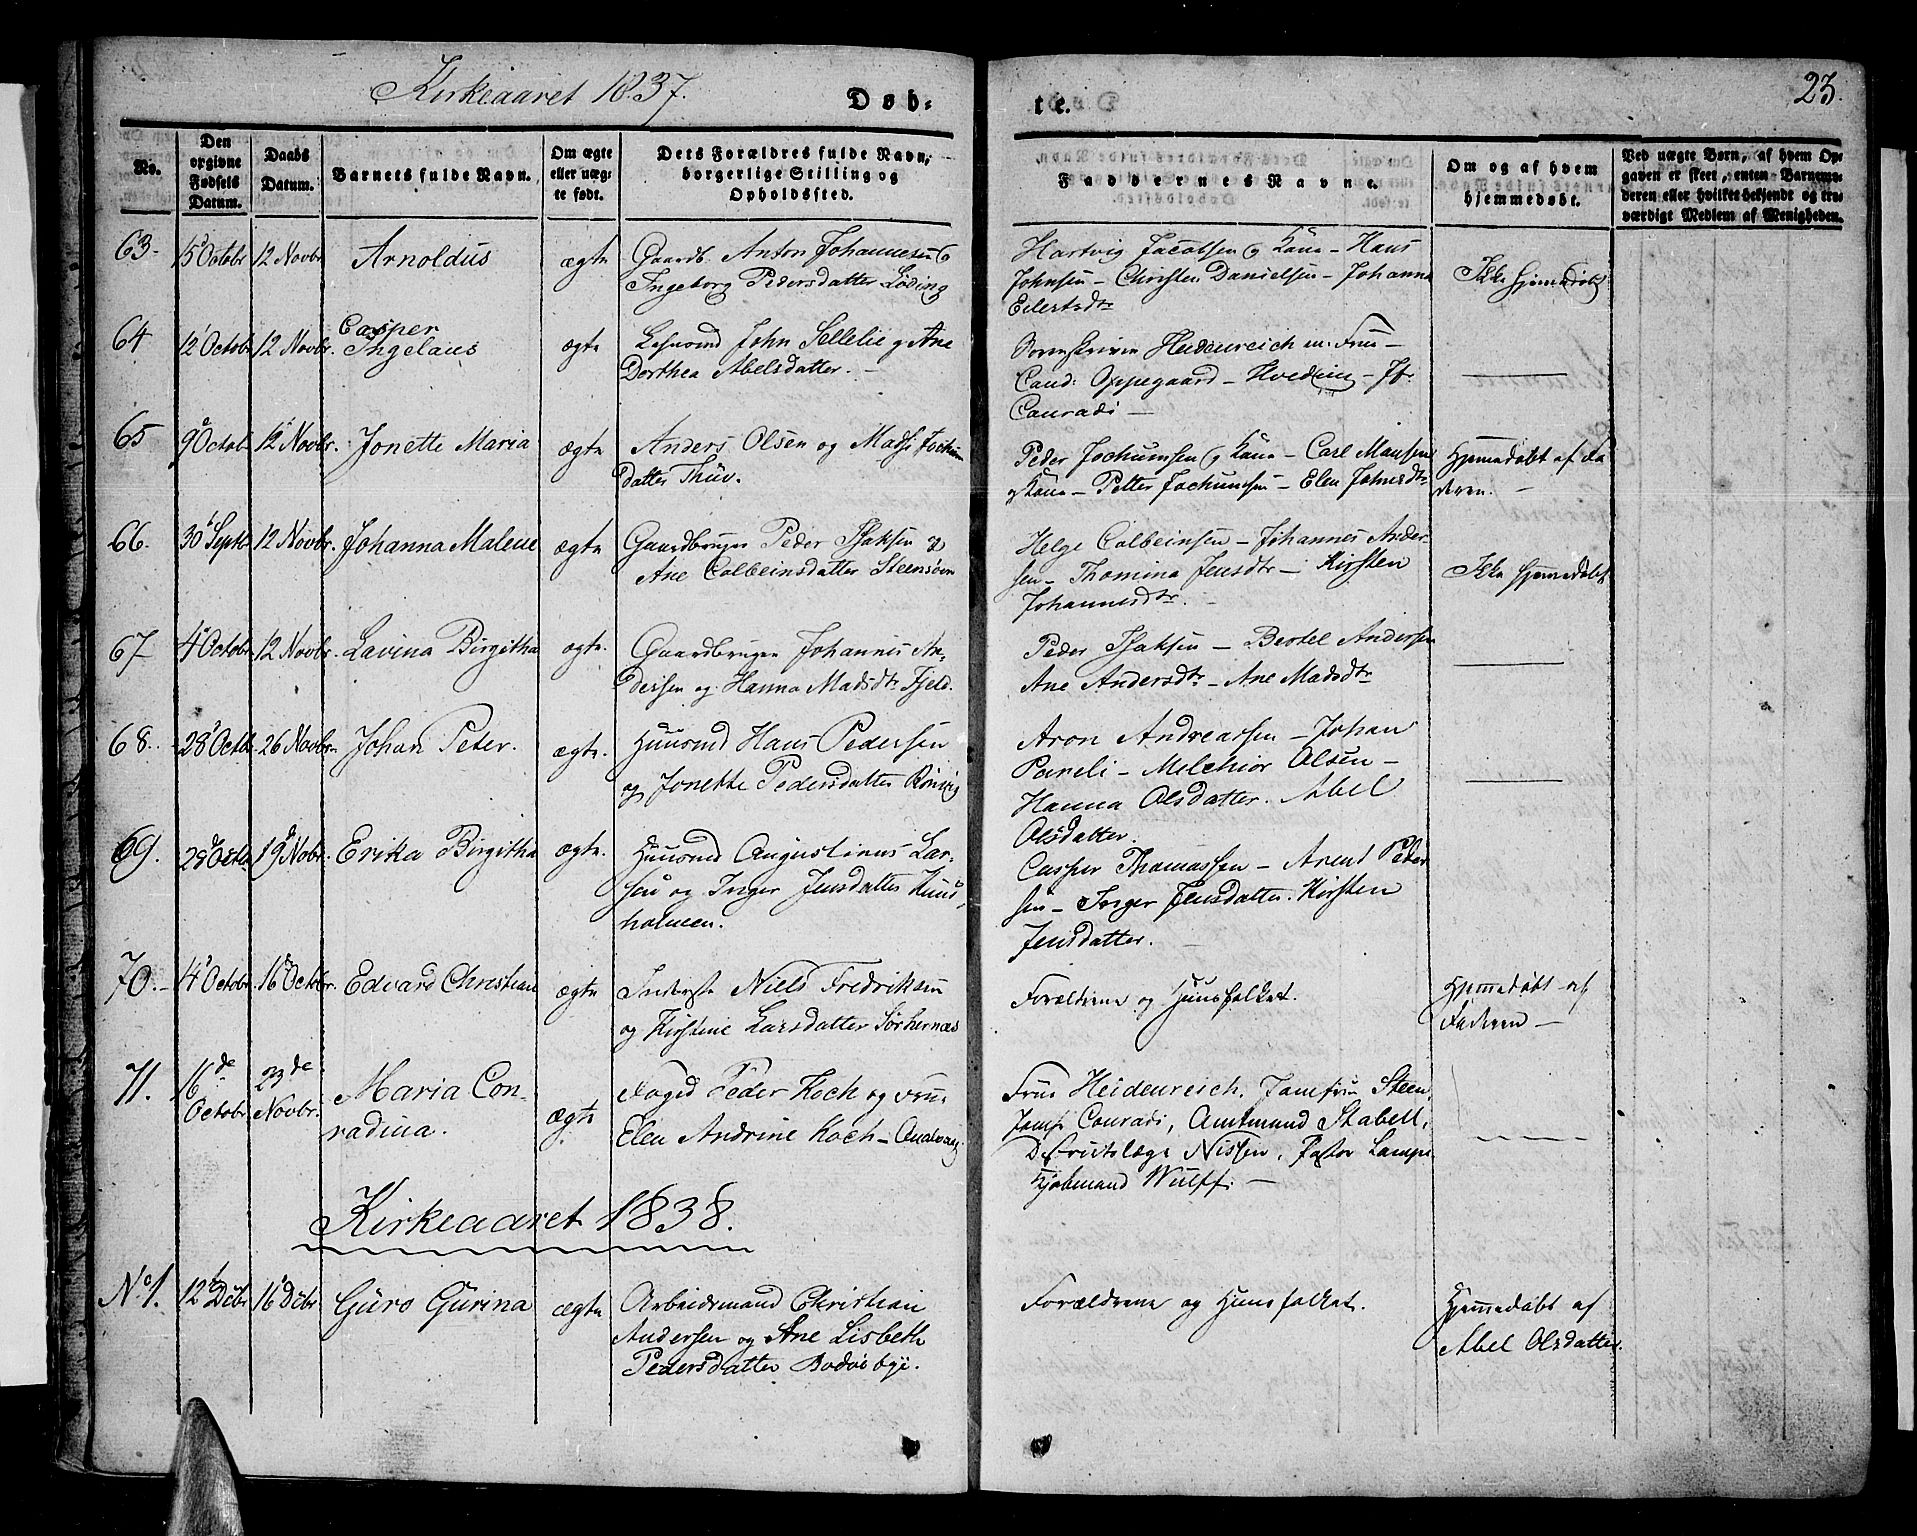 Kirkeaaret 1837.
Døb-
te.
23.
No.
Den
orgivne
Fødsels
Datum.
Daabs
Datum.
Barnets fulde Navn.
Om ægte
eller uæg-
te født.
Dets Forældres fulde Navn,
borgerlige Stilling og
Opholdssted.
Faddernes Navne.
Om og af hvem
hjemmedøbt.
Ved uægte Børn, af hvem Op-
gaven er skeet, enten Barnemo-
deren eller hvilket bekjendt og tro-
værdigt Medlem af Menigheden.
63. 15 Octobr 12 Novbr Arnoldus ægte
Gaardb. Anton Johannesen og
Ingeborg Pedersdatter Løding
Hartvig Jacobsen og Kone - Hans
Johnsen - Christen Danielsen - Johanna
Eilertsdtr
Ikke hjemmedøbt
64 12 Octobr 12 Novbr. Casper
Ingelaus ægte
John Sellelie og Ane
Dorthea Abelsdatter. -
Sorenskriver Heidenreich m. Frue -
Cand: Oppegaard - Hveding - Jfr.
Conradi -
65 9 Octob 12 Novbr. Jonette Maria ægte
Anders Olsen og Mads Jochum
datter Thuv.
Peder Jochumsen og Kone - Carl Monsen
og Kone - Petter Jochumsen - Elen Johnsdtr
Hjemmedøbt af Fa
deren. -
66. 30 Septbr 12 Novbr. Johanna Malene ægte
Gaardbruger Peder Isaksen og
Ane Colbeinsdatter Steensøen
Helge Colbeinsen - Johannes Ander-
sen - Thomina Jensdtr - Kirsten
Johannesdtr.
Ikke hjemmedøbt
67 4 Octobr 12 Novbr. Lavina Birgitha ægte.
Gaardbruger Johannes An-
dersen og Hanna Madsdtr Fjeld.
Peder Isaksen - Bertel Andersen
Ane Andersdtr - Ane Madsdtr
68. 28 Octb. 26 Novbr. Johan Peter. ægte.
Huusmd Hans Pedersen
og Jonette Pedersdatter Rønvig
Aron Andreassen - Johan
Pareli - Melchior Olsen -
Hanna Olsdatter. Abel
Olsdatter.
69. 29 Octb. 19 Novbr. Erika Birgitha ægte.
Huusmd Augustinus Lar-
sen og Inger Jensdatter Knus
holmen.
Casper Thomassen - Arent Peder
sen - Inger Jensdatter. Kirsten
Jensdatter.
70. 14 Octobr. 16 Octbr. Edvard Christian ægte
Inderste Niels Fredriksen
og Kirstine Larsdatter Sørhernæs
Forældrene og Huusfolket.
Hjemmedøbt af
Faderen -
71. 16de
Octobr 23de
Novbr. Maria Con-
radina. ægte
Foged Peder Koch og Frue
Elen Andrine Koch -
Frue Heidenreich. Jomfru Steen,
Jomf: Conradi, Amtmand Stabell,
Districtslæge Nissen, Pastor Lampe
Kjøbmand Wulff. -
Kirkeaaret 1838.
No 1. 12 Debr 16 Debr Guro Gurina ægte
Arbeidsmand Christian
Andersen og Ane Lisbeth
Pedersdatter Bodøe bye.
Forældrene og Huusfolket.
Hjemmedøbt af
Abel Olsdatter.